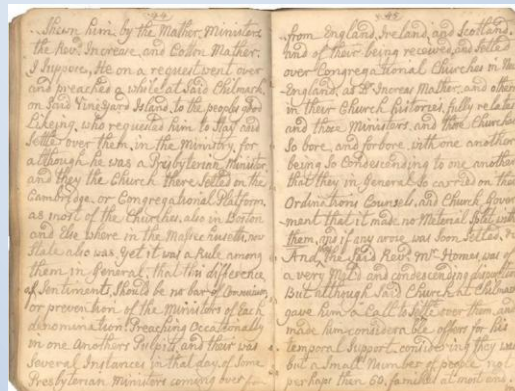 44
Shewn him by the Mather, Ministers
the Revd. Increase, and Cotton Mather.
I Suppose, He on a request went over
and preached a while at said Chilmark,
on said Vineyard Island, to the peoples good
Likeing, who requested him to Stay and
Settle over them, in the Ministry, for
although he was a Presbyterian Minister
and they the Church there Setled on the
Cambridge, or Congregational Platform,
as most of the Churches, also in Boston
and Else where in the Massechusetts, now
State also was, yet it was a Rule among
them in General, that this difference
of Sentiments, Should be no bar of Communion
or prevention of the Ministers of Each
denomination Preaching Occasionally
in one Anothers Pulpits, and their was
Several Instances in that day, of Some
Presbyterian Ministers coming over
from England, Ireland, and Scotland,
and of their being received, and Setled
over Congregational Churches in New
England, as Dr. Increas Mather, and others
in their Church histories, fully relates
and those Ministers, and those Churches
So bore, and forbore, with one another
being So Condescending to one another
that they in General So carried on their
Ordinations Counsels, and Church Govern
ment that it made no Material with
them, and if any arose was Soon Setled,
And, the said Revd. Mr. Homes, was of
a very Mild and condescending disposition
But although Said Church at Chilmark
gave him a Call to Settle over them, and
made him considerable offers for his
temporal Support, considering they was
but a Small Number of people, not
perhaps than 60, families at most one